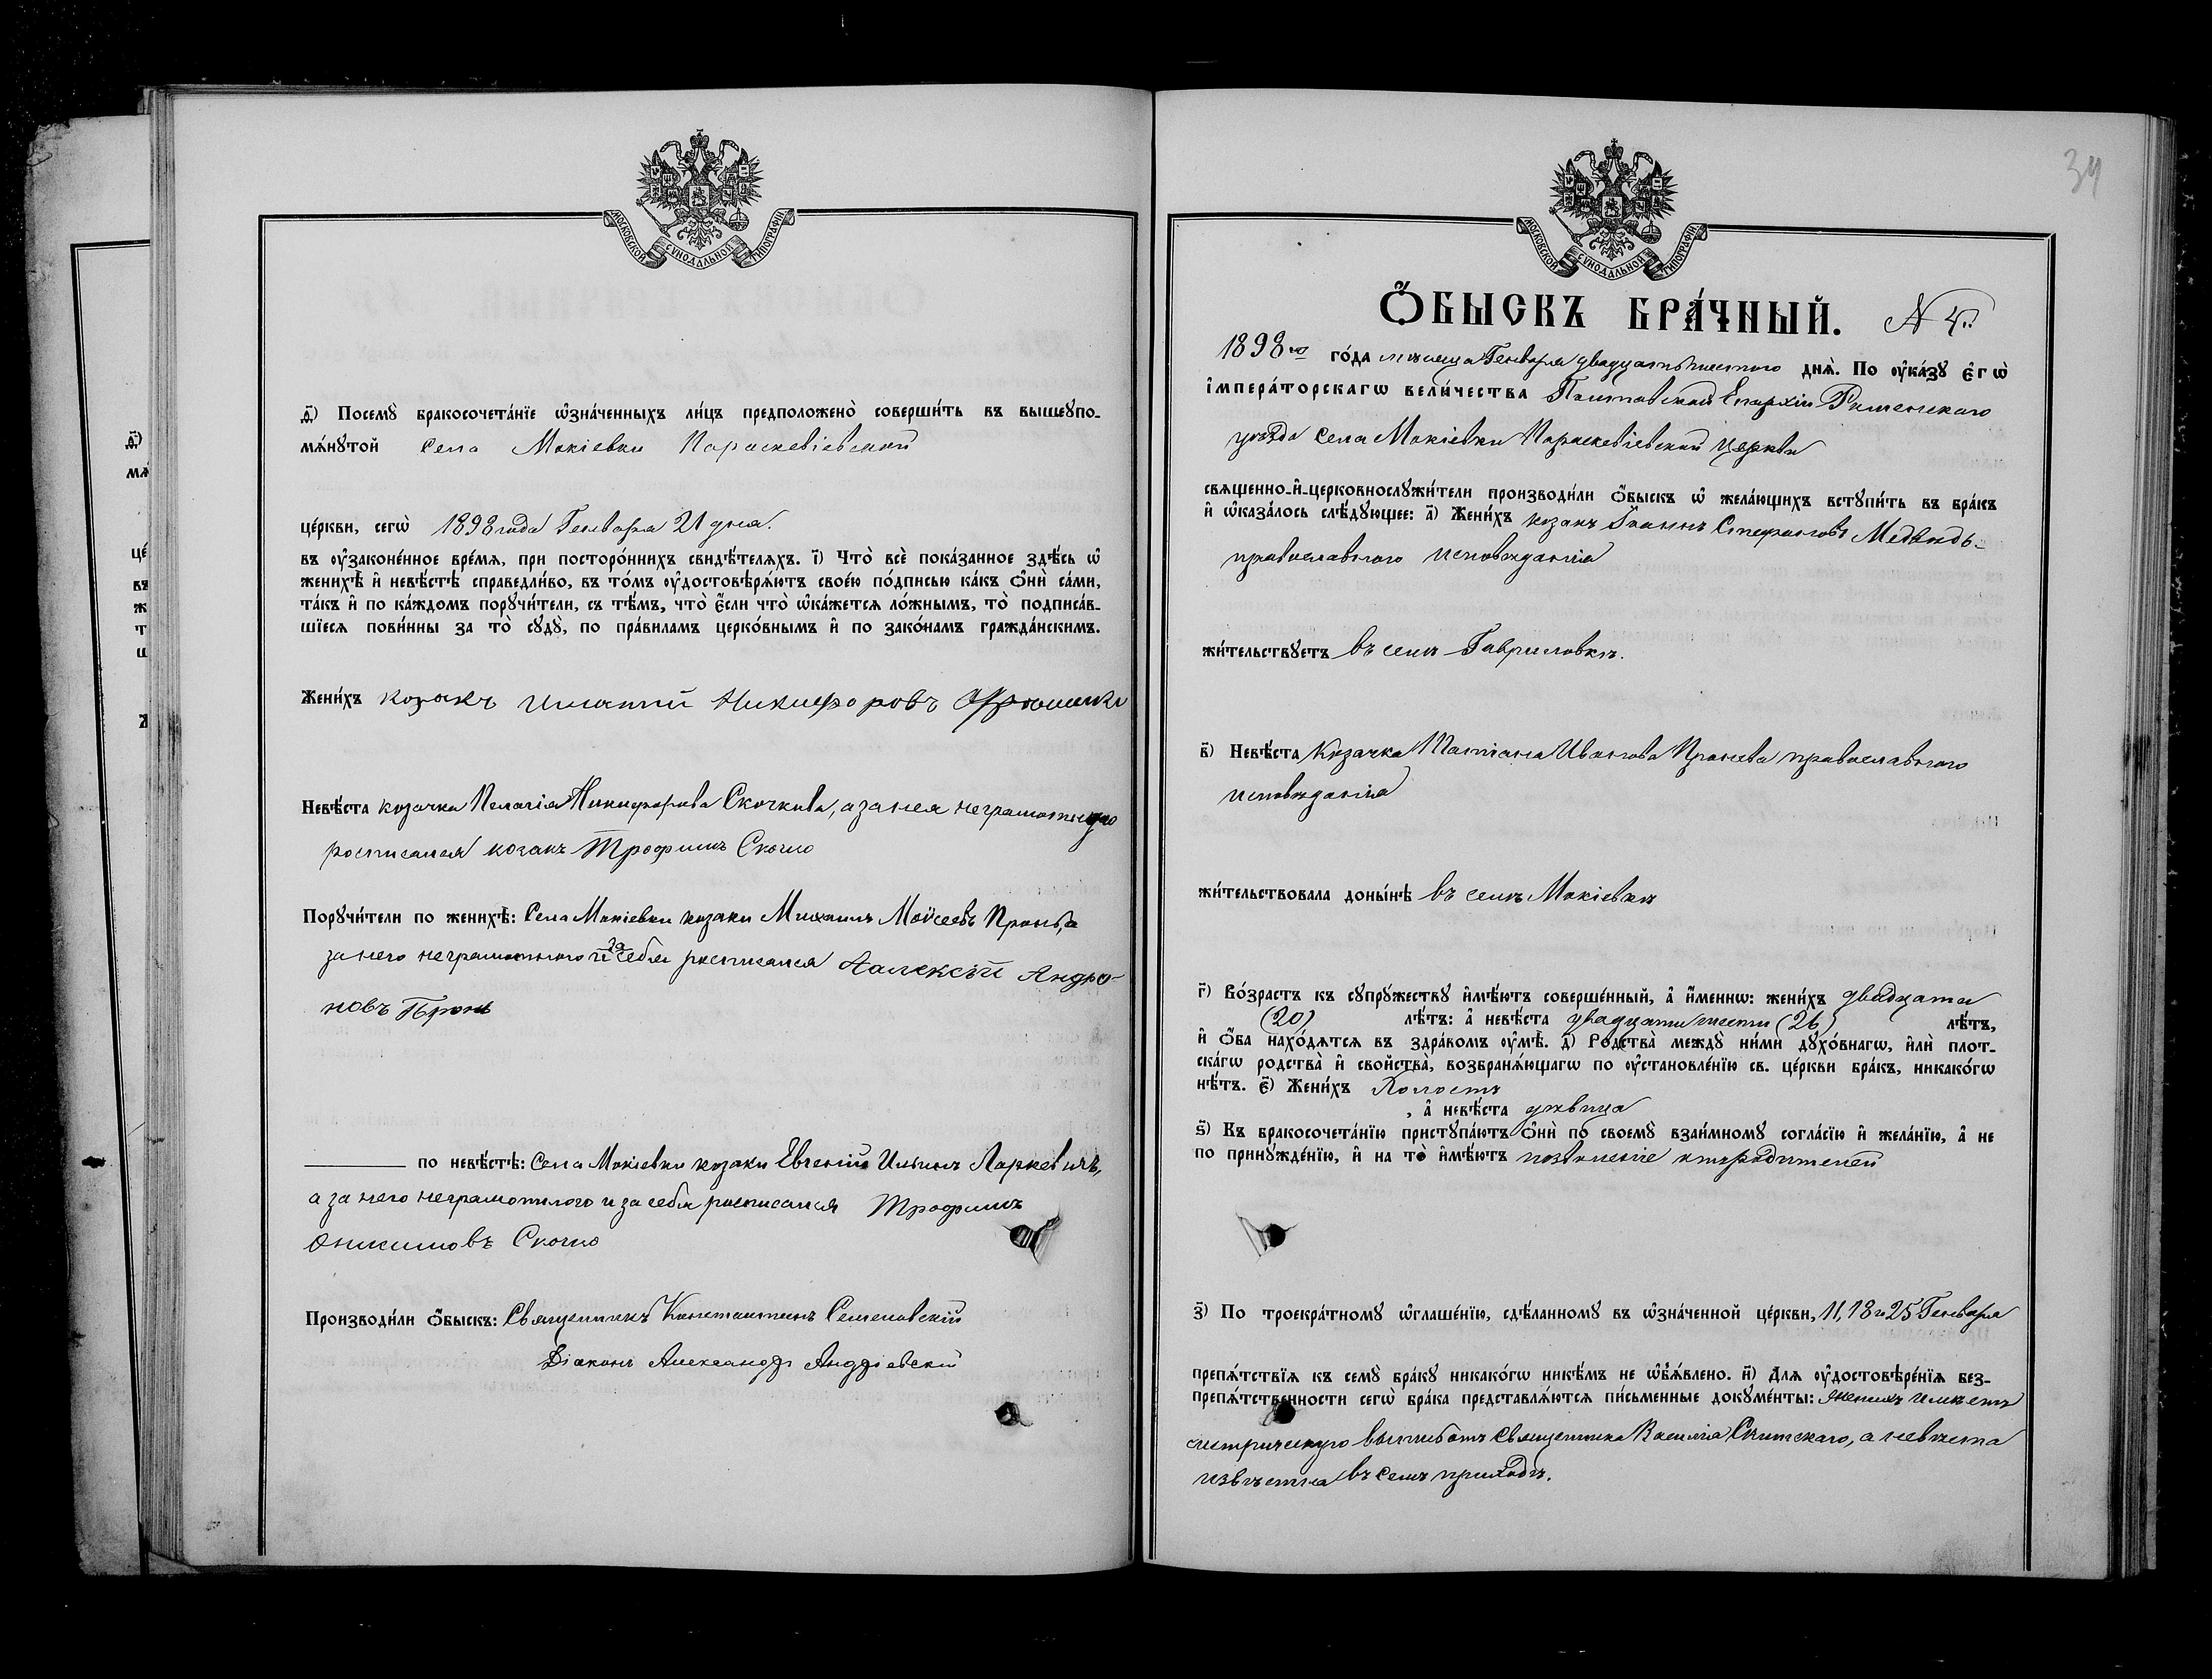 МОСКОВСКОЙ СѴНОДАЛЬНОЙ ТИПОГРАФІИ
д҃і) Посемꙋ̀ бракосочета́нїе ѡ҆зна́ченныхъ ли́цъ предположено̀ соверши́ть въ вышеꙋпо-
мѧ́нꙋтой села Мокіевки Параскевіевской
це́ркви, сегѡ̀ 1898 года Генваря 21 дня.
въ ᲂу҆законе́нное вре́мѧ, при посторо́ннихъ свидѣ́телѧхъ. і҃) Что̀ всѐ пока́занное здѣ́сь ѡ҆
женихѣ̀ и҆ невѣ́стѣ справедли́во, въ то́мъ ᲂу҆достовѣрѧ́ютъ свое́ю по́дписью ка́къ ѻ҆нѝ са́ми,
та́къ и҆ по ка́ждомъ порꙋчи́тели, съ тѣ́мъ, что̀ є҆́сли что̀ ѡ҆ка́жетсѧ ло́жнымъ, то̀ подписа́в-
шїесѧ пови́нны за то̀ сꙋдꙋ̀, по пра́виламъ церко́внымъ и҆ по зако́намъ гражда́нскимъ.
Жени́хъ козакъ Никифоровъ
Невѣ́ста козачка Пелагія Никифорова Скочкова, а за нея неграмотную
росписался козакъ Трофимъ Скочко
Порꙋчи́тели по женихѣ̀: Села Мокіевки козаки Михаилъ Моѵсеевъ Пронь, а
за него неграмотного и за себя росписался Аалексѣй Андро-
новъ Пронь
по невѣ́стѣ: Села Мокіевки козаки Евгеній Ильинъ
а за него неграмотного и за себя росписался Трофимъ
Скочко
Производи́ли ѻ҆́быскъ: Священникъ Константинъ Семеновскій
Діаконъ Александръ Андріевскій
34
МОСКОВСКОЙ СѴНОДАЛЬНОЙ ТИПОГРАФІИ
Ѻ҆́БЫСКЪ БРА́ЧНЫЙ. N 4.
1898го го́да мѣсяца Генваря двадцать шестого днѧ̀. По ᲂу҆ка́зꙋ є҆гѡ̀
і҆мпера́торскагѡ вели́чества Полтавской Епархіи Роменскаго
уѣзда села Мокіевки Параскевіевской церкви
свѧщенно-и҆-церковнослꙋжи́тели производи́ли ѻ҆́быскъ ѡ҆ жела́ющихъ встꙋпи́ть въ бра́къ
и҆ ѡ҆каза́лось слѣ́дꙋющее: а҃) Жени́хъ козакъ Іоаннъ Стефановъ Медвѣдь
православного исповѣданія
жи́тельствꙋетъ въ селѣ Гавриловкѣ.
в҃) Невѣ́ста козачка Татіана Иванова Пронева православного
исповѣданія
жи́тельствовала доны́нѣ въ селѣ Мокіевкѣ
г҃) Во́зрастъ къ сꙋпрꙋ́жествꙋ и҆мѣ́ютъ соверше́нный, а҆ и҆́меннѡ: жени́хъ двадцати
(20) лѣ́тъ: а҆ невѣ́ста двадцати шести (26) лѣ́тъ,
и҆ ѻ҆́ба нахо́дѧтсѧ въ здра́комъ ᲂу҆мѣ̀. д҃) Родства̀ междꙋ̀ ни́ми дꙋхо́внагѡ, и҆лѝ плот-
ска́гѡ родства̀ и҆ свойства̀, возбранѧ́ющагѡ по ᲂу҆становле́нїю св. це́ркви бра́къ, никако́гѡ
нѣ́тъ. є҃) Жени́хъ Холостъ
, а҆ невѣ́ста дѣвица
ѕ҃) Къ бракосочета́нїю пристꙋпа́ютъ ѻ҆нѝ по своемꙋ̀ взаи́мномꙋ согла́сїю и҆ жела́нїю, а҆ не
по принꙋжде́нїю, и҆ на то̀ и҆мѣ́ютъ позволеніе отъ родителей
з҃) По троекра́тномꙋ ѡ҆глаше́нїю, сдѣ́ланномꙋ въ ѡ҆зна́ченной це́ркви, 11, 18 и 25 Генваря
препѧ́тствїѧ къ семꙋ̀ бра́кꙋ никако́гѡ никѣ́мъ не ѡ҆б̾ѧ́влено. и҃) Длѧ ᲂу҆достовѣре́нїѧ без-
препѧ́тственности сегѡ̀ бра́ка представлѧ́ютсѧ пи́сьменные докꙋме́нты: женихъ имѣетъ
метрическую выпись отъ священника Василія Скитскаго, а невѣста
извѣстна въ семъ приходѣ.